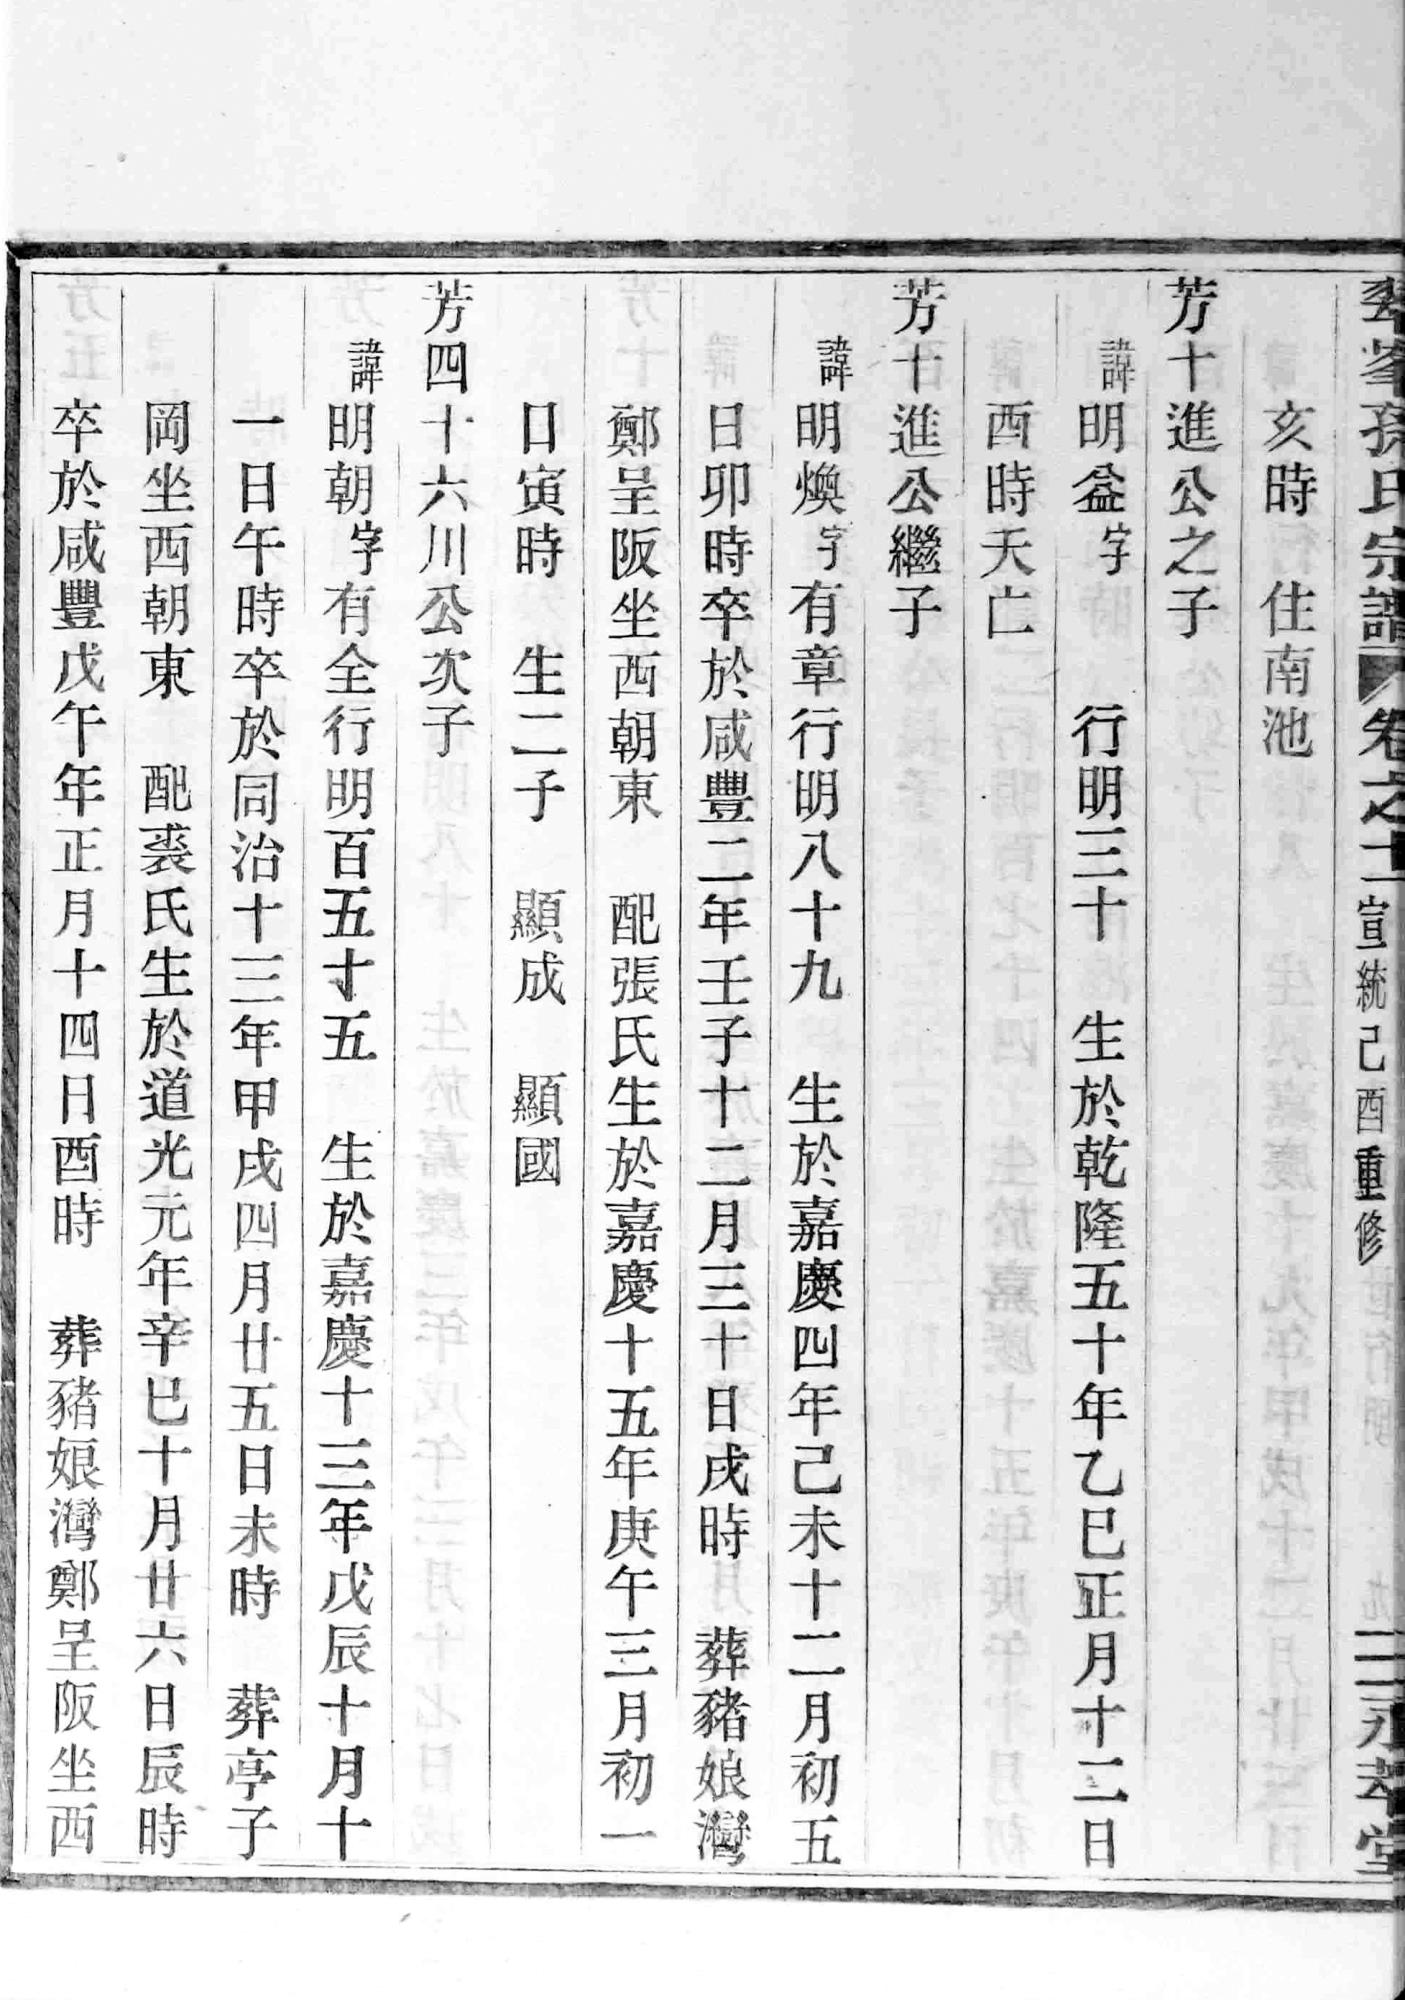 孫氏宗譜 卷之十一 宣統己酉重修 永萃堂
亥時 住南池
芳十進公之子
諱明益字 行明三十 生於乾隆五十年乙巳正月十二日
酉時夭亡
芳十進公繼子
諱明煥字有章行明八十九 生於嘉慶四年己未十二月初五
日卯時卒於咸豐二年壬子十二月三十日戌時 葬豬娘灣
鄭呈阪坐西朝東 配張氏生於嘉慶十五年庚午三月初一
日寅時 生二子 顯成 顯國
芳四十六川公次子
諱明朝字有全行明百五十五 生於嘉慶十三年戊辰十月十
一日午時卒於同治十三年甲戌四月廿五日未時 葬亭子
岡坐西朝東 配裘氏生於道光元年辛巳十月廿六日辰時
卒於咸豐戊午年正月十四日酉時 葬豬娘灣鄭呈阪坐西